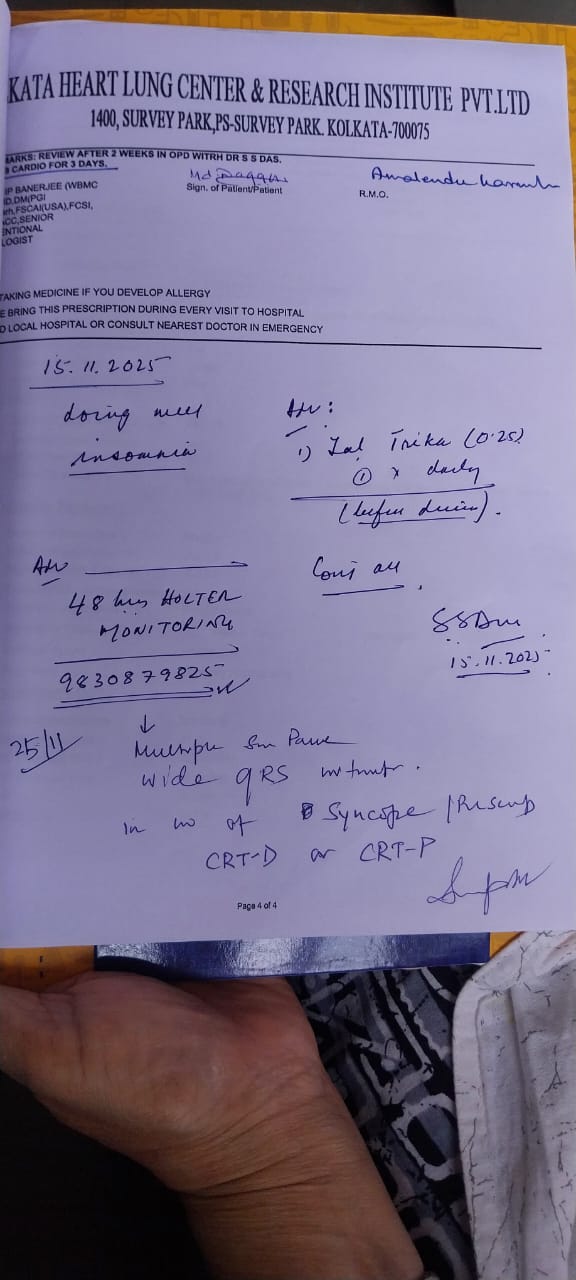 KATA HEART LUNG CENTER & RESEARCH INSTITUTE PVT.LTD
1400, SURVEY PARK,PS-SURVEY PARK. KOLKATA-700075
ARKS: REVIEW AFTER 2 WEEKS IN OPD WITRH DR S S DAS.
CARDIO FOR 3 DAYS.
IP BANERJEE (WBMC
D,DM(PGI
FSCAI(USA),FCSI,
CC,SENIOR
ENTIONAL
LOGIST
Md
Sign. of Patient/Patient
Amalendu
R.M.O.
TAKING MEDICINE IF YOU DEVELOP ALLERGY
E BRING THIS PRESCRIPTION DURING EVERY VISIT TO HOSPITAL
D LOCAL HOSPITAL OR CONSULT NEAREST DOCTOR IN EMERGENCY
15.11.2025
doing well
insomnia
Adv:
1) Tab Trika (0.25)
① x daily
Adv
48 hrs HOLTER
MONITORING
9830879825
Cont all
SSDas
15.11.2025
25/11
↓
Multiple Pause
wide QRS
in of Syncope /
CRT-D or CRT-P
Page 4 of 4